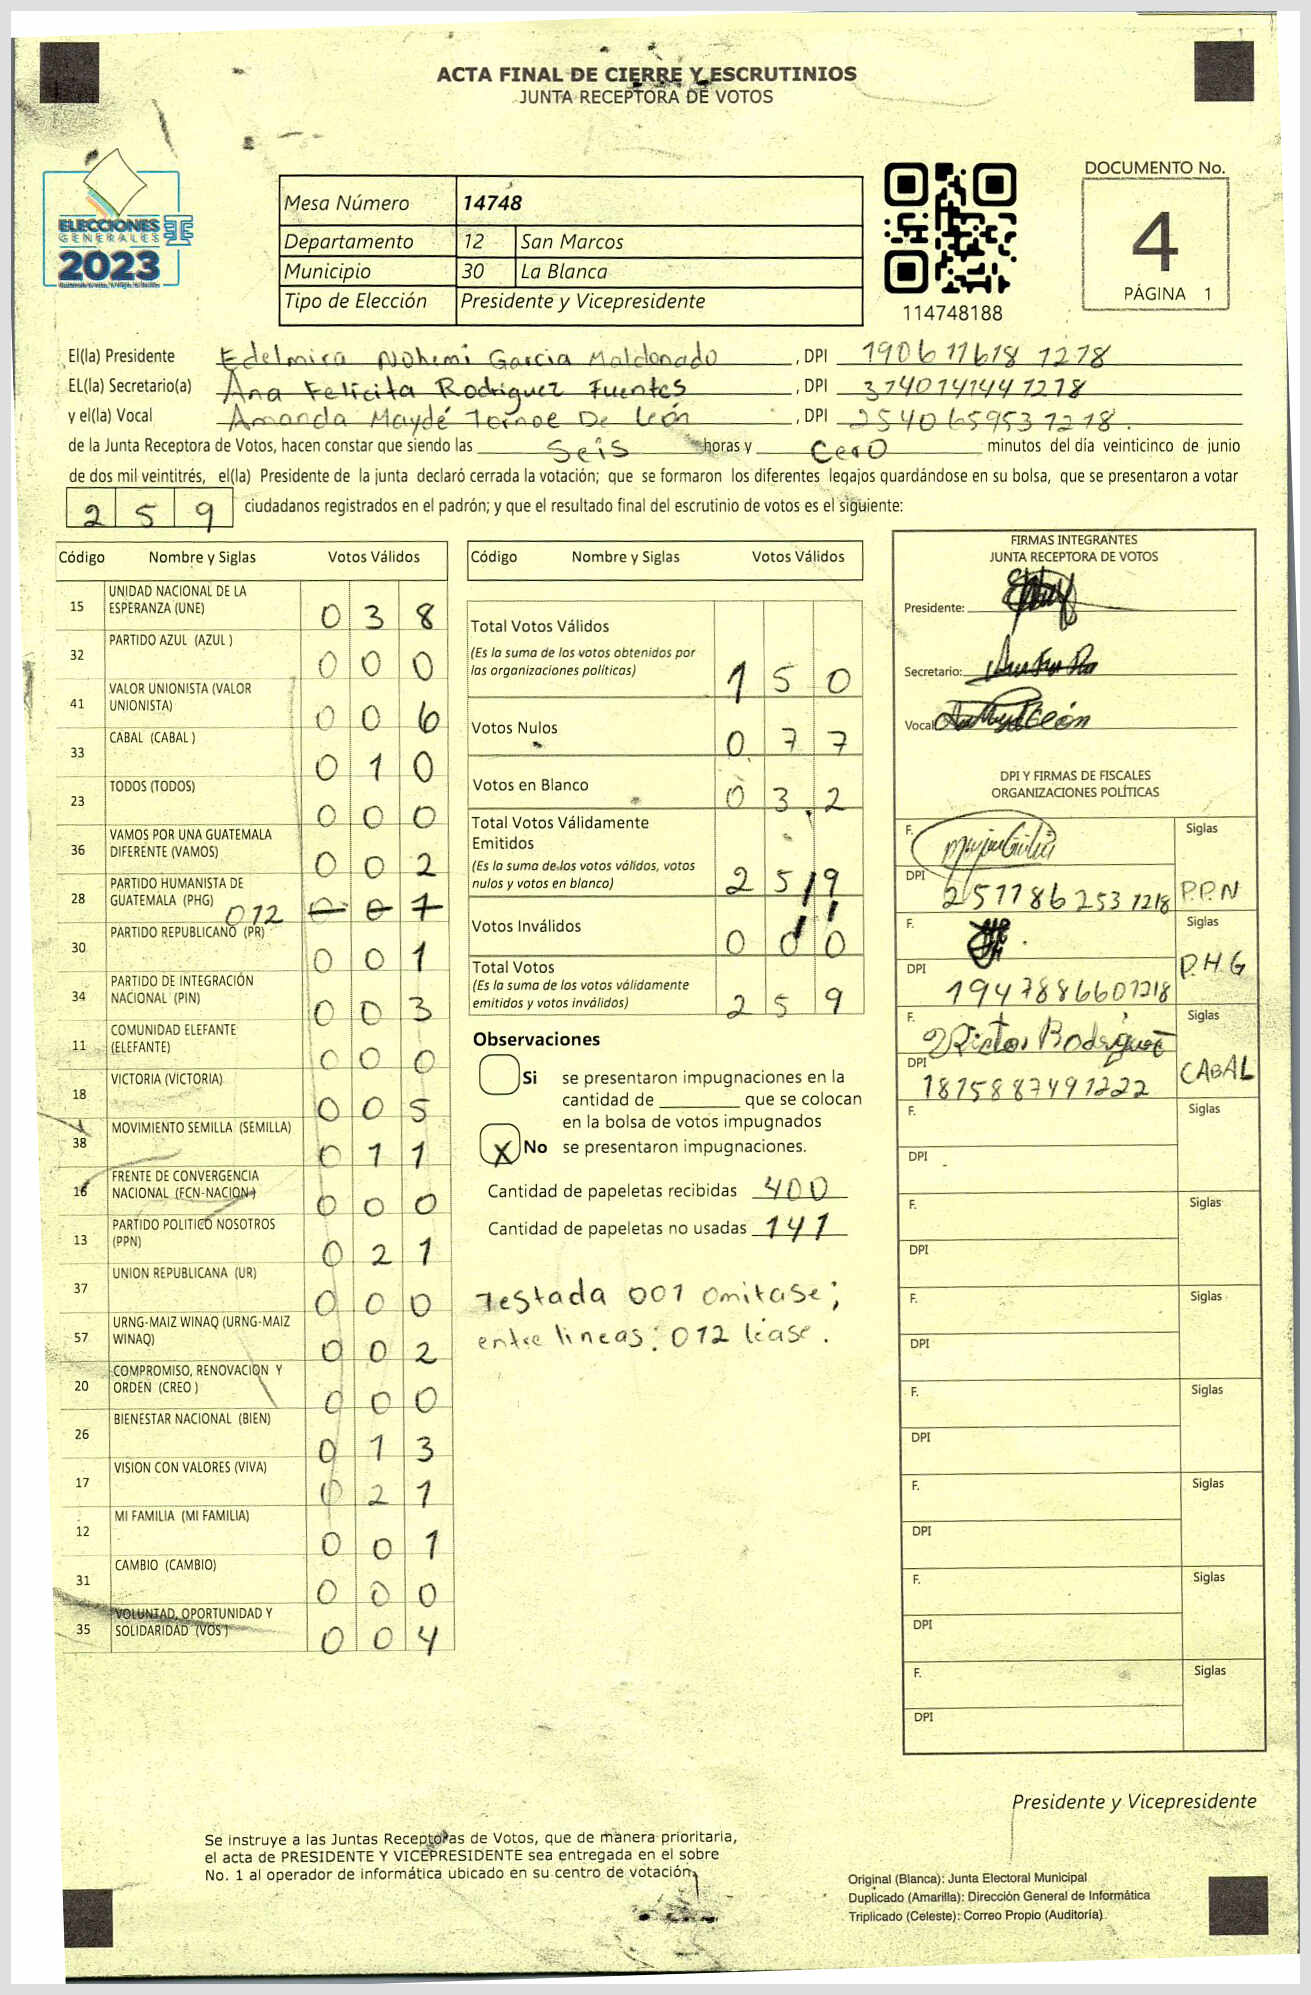 ACTA FINAL DE CIERRE Y ESCRUTINIOS
JUNTA RECEPTORA DE VOTOS
ELECCIONES
GENERALES
2023
Mesa Número 14748
Departamento 12 San Marcos
Municipio 30 La Blanca
Tipo de Elección Presidente y Vicepresidente
114748188
DOCUMENTO No.
4
PÁGINA 1
El(la) Presidente Edelmira Nohemi Garcia Maldonado, DPI 190611618 1218
EL(la) Secretario(a) Ana Felicita Rodriguez Fuentes, DPI 314014144 1218
y el(la) Vocal Amanda Maydé De León, DPI 254065953 1218.
de la Junta Receptora de Votos, hacen constar que siendo las Seis horas y Cero minutos del día veinticinco de junio
de dos mil veintitrés, el(la) Presidente de la junta declaró cerrada la votación; que se formaron los diferentes legajos quardándose en su bolsa, que se presentaron a votar
259 ciudadanos registrados en el padrón; y que el resultado final del escrutinio de votos es el siguiente:
Código Nombre y Siglas Votos Válidos
15 UNIDAD NACIONAL DE LA
ESPERANZA (UNE) 038
32 PARTIDO AZUL (AZUL ) 000
41 VALOR UNIONISTA (VALOR
UNIONISTA) 006
33 CABAL (CABAL ) 010
23 TODOS (TODOS) 000
36 VAMOS POR UNA GUATEMALA
DIFERENTE (VAMOS) 002
28 PARTIDO HUMANISTA DE
GUATEMALA (PHG) 012 001
30 PARTIDO REPUBLICANO (PR) 001
34 PARTIDO DE INTEGRACIÓN
NACIONAL (PIN) 003
11 COMUNIDAD ELEFANTE
(ELEFANTE) 000
18 VICTORIA (VICTORIA) 005
38 MOVIMIENTO SEMILLA (SEMILLA) 011
16 FRENTE DE CONVERGENCIA
NACIONAL (FCN-NACION ) 000
13 PARTIDO POLITICO NOSOTROS
(PPN) 021
37 UNION REPUBLICANA (UR) 000
57 URNG-MAIZ WINAQ (URNG-MAIZ
WINAQ) 002
20 COMPROMISO, RENOVACION Y
ORDEN (CREO ) 000
26 BIENESTAR NACIONAL (BIEN) 013
17 VISION CON VALORES (VIVA) 021
12 MI FAMILIA (MI FAMILIA) 001
31 CAMBIO (CAMBIO) 000
35 VOLUNTAD, OPORTUNIDAD Y
SOLIDARIDAD (VOS ) 004
Código Nombre y Siglas Votos Válidos
Total Votos Válidos
(Es la suma de los votos obtenidos por
las organizaciones políticas) 150
Votos Nulos 077
Votos en Blanco 032
Total Votos Válidamente
Emitidos
(Es la suma de los votos válidos, votos
nulos y votos en blanco) 259
Votos Inválidos 000
Total Votos
(Es la suma de los votos válidamente
emitidos y votos inválidos) 259
Observaciones
Si se presentaron impugnaciones en la
cantidad de ________ que se colocan
en la bolsa de votos impugnados
X No se presentaron impugnaciones.
Cantidad de papeletas recibidas 400
Cantidad de papeletas no usadas 141
Testada 001 omitase;
entre lineas: 012 léase.
FIRMAS INTEGRANTES
JUNTA RECEPTORA DE VOTOS
Presidente:
Secretario:
Vocal
DPI Y FIRMAS DE FISCALES
ORGANIZACIONES POLÍTICAS
F. Siglas
DPI 251186253 1218 P.P.N
F. Siglas
DPI 1947886601218 P.H.G
F. Victor Rodriguez Siglas
DPI 1815887491222 CABAL
F. Siglas
DPI
F. Siglas
DPI
F. Siglas
DPI
F. Siglas
DPI
F. Siglas
DPI
F. Siglas
DPI
F. Siglas
DPI
Presidente y Vicepresidente
Se instruye a las Juntas Receptoras de Votos, que de manera prioritaria,
el acta de PRESIDENTE Y VICEPRESIDENTE sea entregada en el sobre
No. 1 al operador de informática ubicado en su centro de votación
Original (Blanca): Junta Electoral Municipal
Duplicado (Amarilla): Dirección General de Informática
Triplicado (Celeste): Correo Propio (Auditoría)